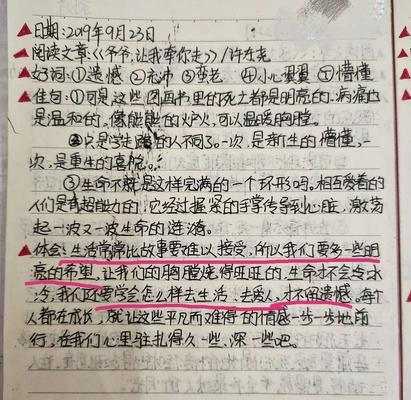 ▲日期:2019年9月23日
▲阅读文章:《爷爷,让我牵你走》/许冬尧
▲好词:①遗憾 ②充沛 ③蛮老 ④小心翼翼 ⑤懵懂
▲佳句:①可是这些图画书里的死亡都是明亮的,病痛也
是温和的,像熊熊的炉火,可以温暖胸膛。
②只是学走路的人不同了。一次,是新生的懵懂,一
次,是重生的喜悦。
③生命不就是这样完满的一个环形吗。相互爱着的
人们是有超能力的,它经过握紧的手掌传导到心脏,激荡
起一波又一波生命的涟漪。
▲体会:生活常常比故事要难以接受,所以我们要多一些明
亮的希望,让我们的胸膛烧得旺旺的,生命才不会冷冰
冷,我们还要学会怎么样去生活、去爱人,才不留遗憾。每个
人都在成长,就让这些平凡而难得的情感一步一步地前
行,在我们心里驻扎得久一些,深一些吧。